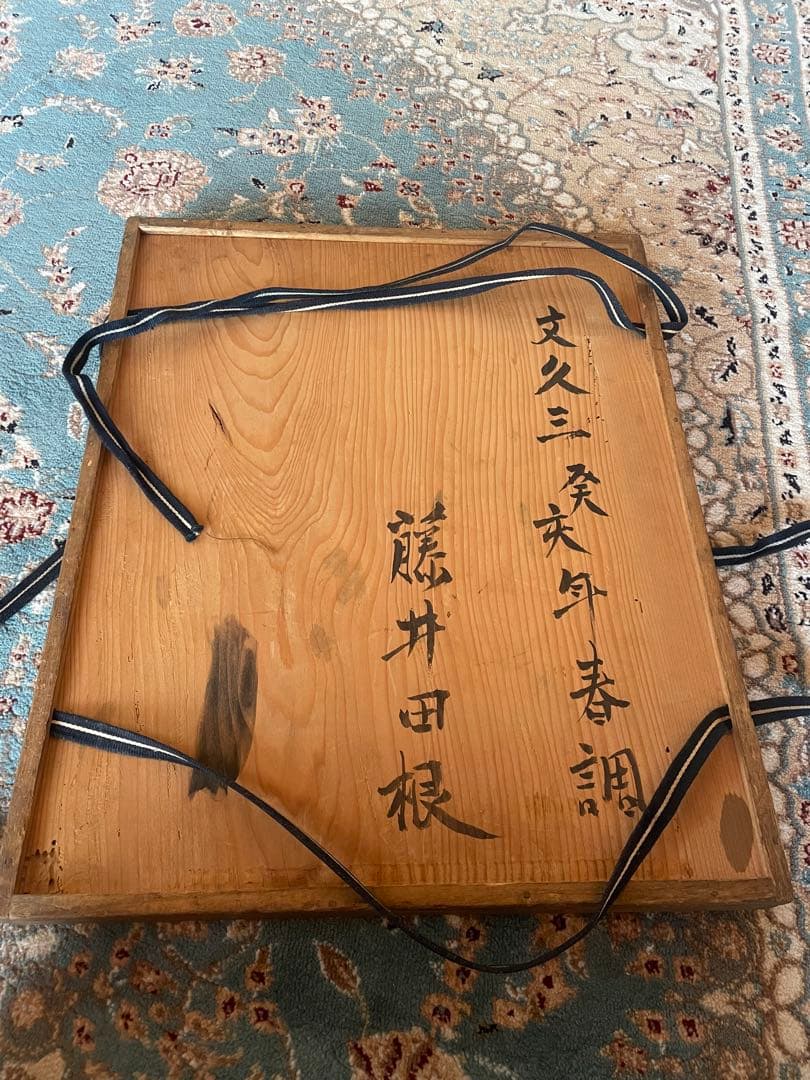 文久三癸亥年春調
藤井田根